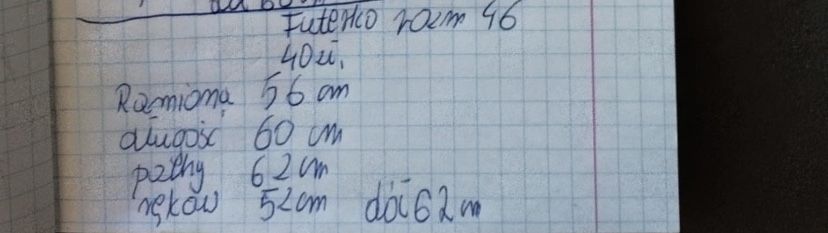 Futerko rozm 46
40zł.
Ramiona 56 cm
długość 60 cm
pachy 62 cm
rękaw 52cm dół 62 m